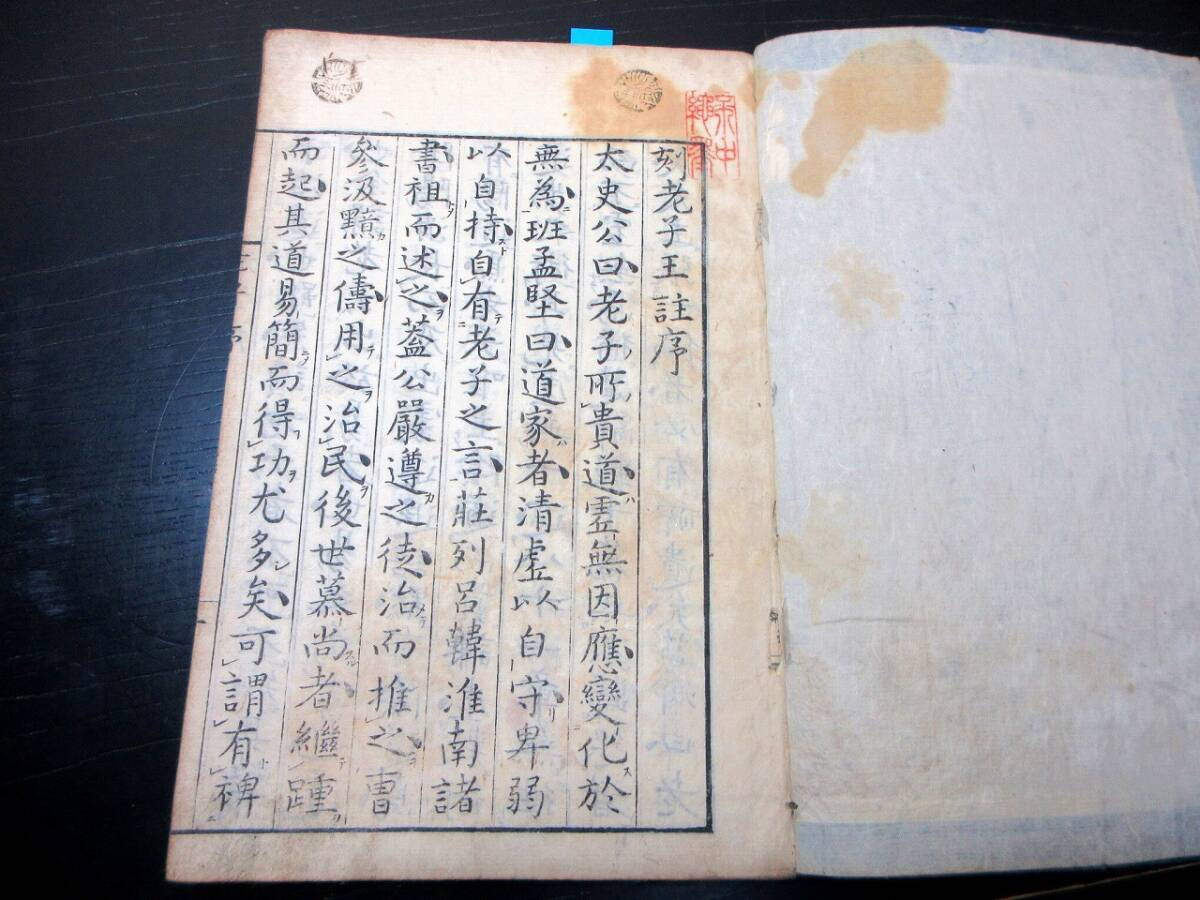 刻老子王註序
太史公曰老子所貴道虛無因應變化於
無為班孟堅曰道家者清虛以自守卑弱
以自持自有老子之言莊列呂韓淮南諸
書祖而述之蓋公嚴遵之徒治而推之曹
參汲黯之儔用之治民後世慕尚者繼踵
而起其道易簡而得功尤多矣可謂有裨